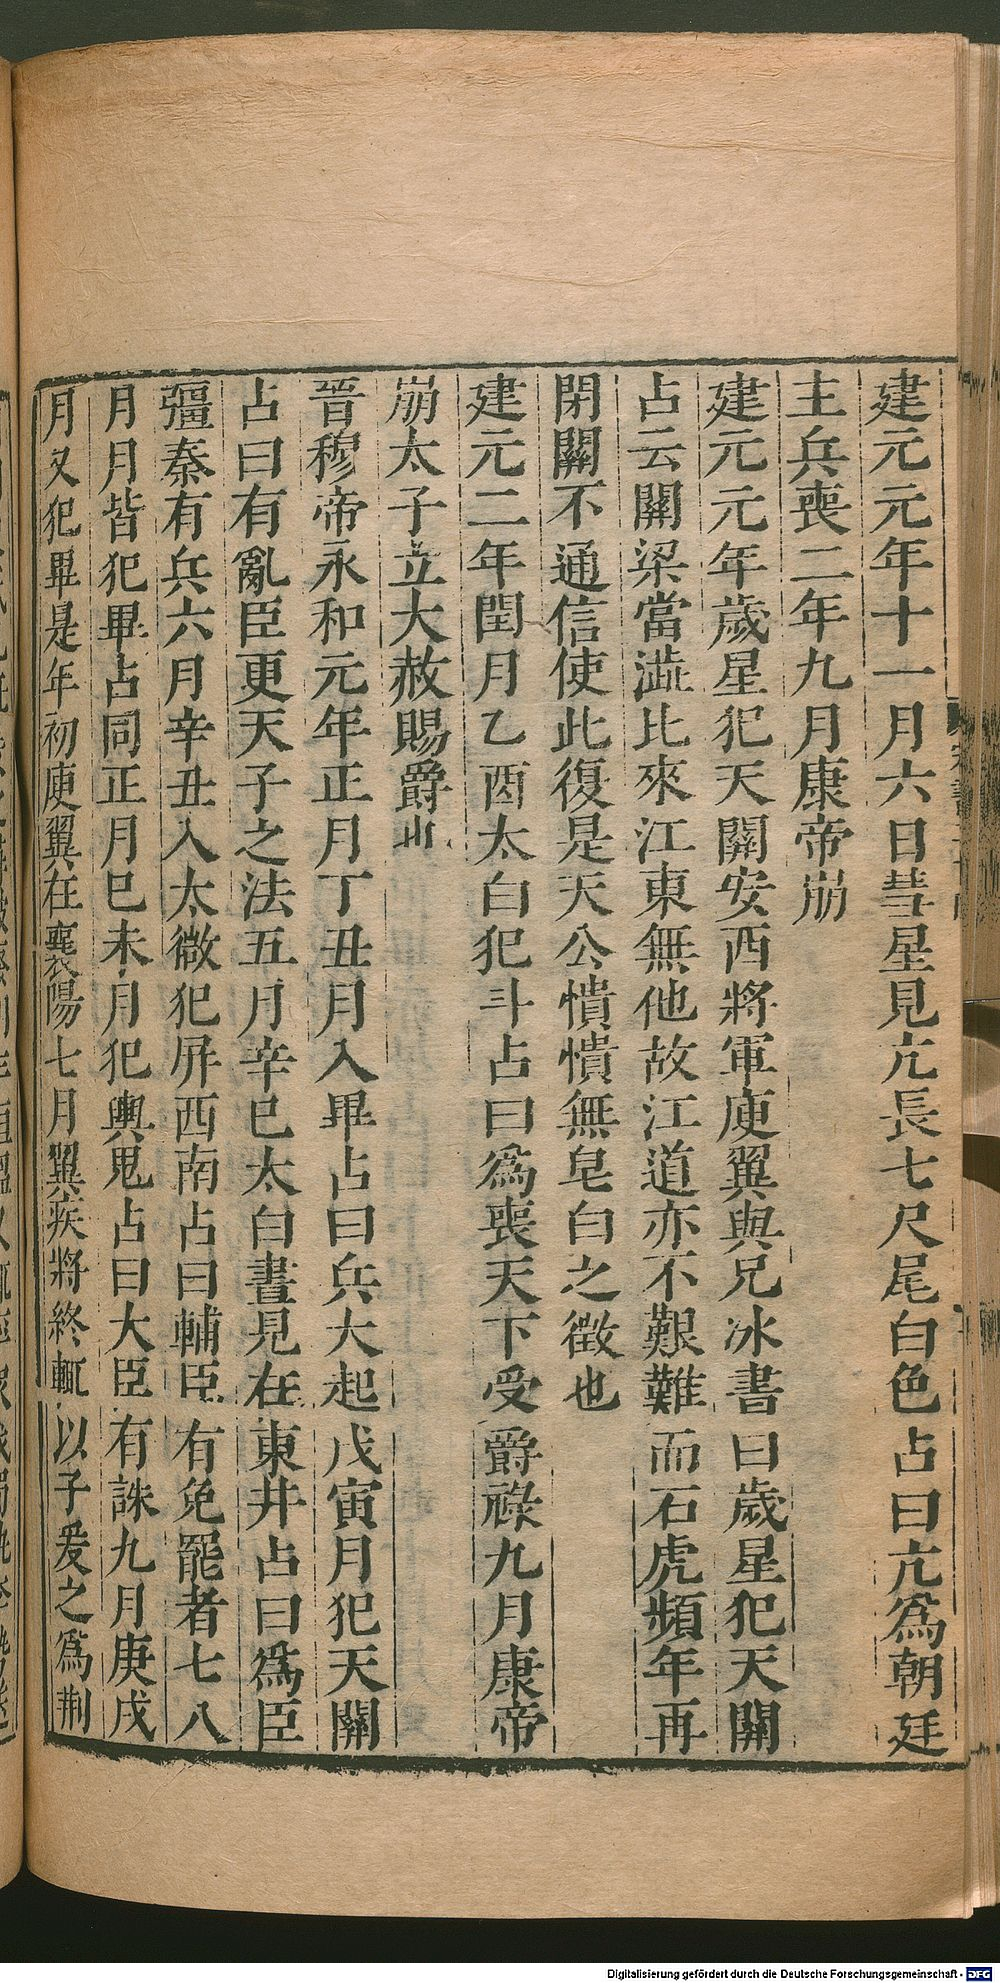 建元元年十一月六日彗星見亢長七尺尾白色占曰亢爲朝廷
主兵喪二年九月康帝崩
建元元年歲星犯天關安西將軍庾翼與兄冰書曰歲星犯天關
占云關梁當澁比來江東無他故江道亦不艱難而石虎頻年再
閉關不通信使此復是天公憒憒無皂白之徵也
建元二年閏月乙酉太白犯斗占曰爲喪天下受爵祿九月康帝
崩太子立大赦賜爵
晉穆帝永和元年正月丁丑月入畢占曰兵大起戊寅月犯天關
占曰有亂臣更天子之法五月辛巳太白晝見在東井占曰爲臣
彊秦有兵六月辛丑入太微犯屏西南占曰輔臣有免罷者七八
月月皆犯畢占同正月己未月犯輿鬼占曰大臣有誅九月庚戌
月又犯畢是年初庾翼在襄陽七月翼疾將終輒以子爰之爲荆
Digitalisierung gefördert durch die Deutsche Forschungsgemeinschaft - DFG